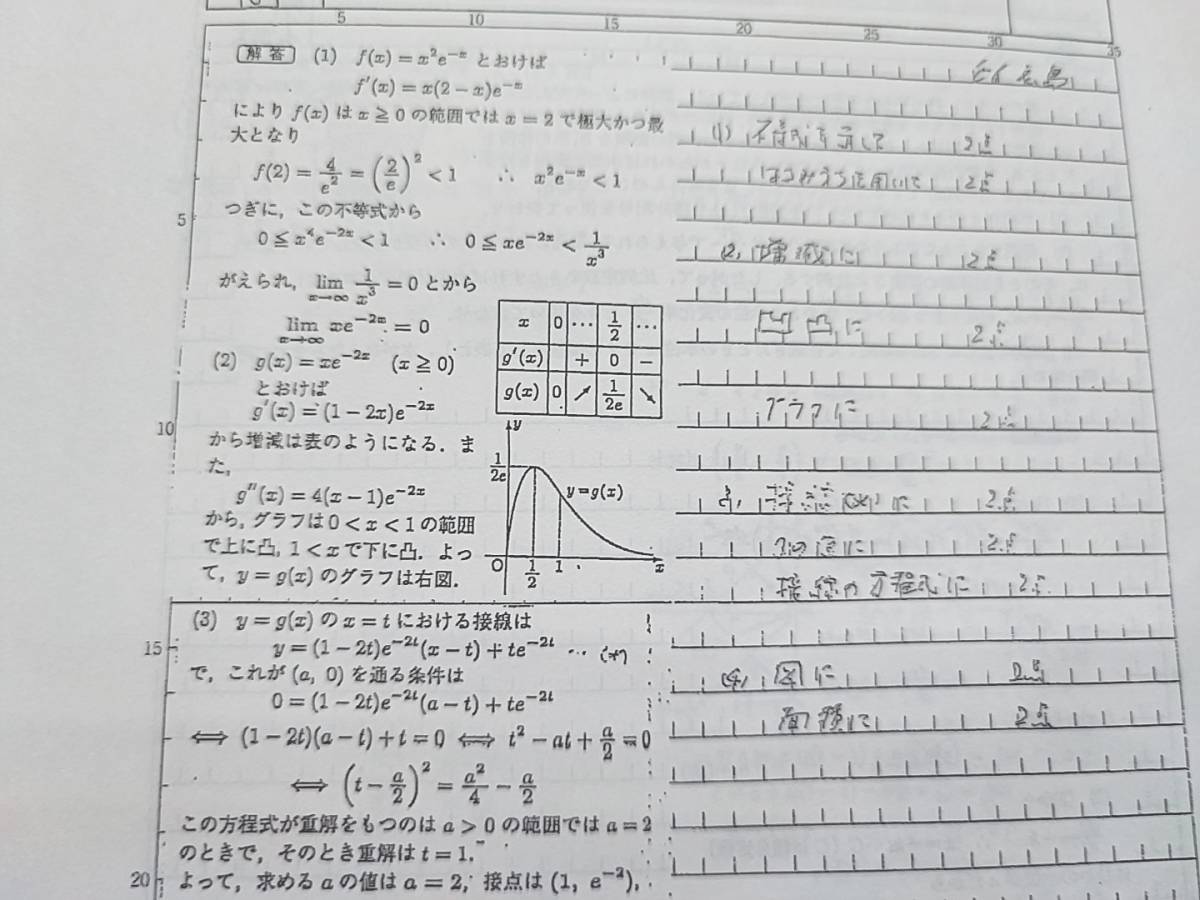 5 10 15 20 25 30 35
解答 (1) f(x)=x²e⁻ˣ とおけば
f′(x)=x(2−x)e⁻ˣ
により f(x) は x≧0 の範囲では x=2 で極大かつ最
大となり
f(2)=4/e²=(2/e)²<1 ∴ x²e⁻ˣ<1
5 つぎに, この不等式から
0≦x⁴e⁻²ˣ<1 ∴ 0≦xe⁻²ˣ<1/x³
がえられ, lim x→∞ 1/x³=0 とから
lim x→∞ xe⁻²ˣ=0
(2) g(x)=xe⁻²ˣ (x≧0)
とおけば
g′(x)=(1−2x)e⁻²ˣ
10 から増減は表のようになる. ま
た,
g″(x)=4(x−1)e⁻²ˣ
から, グラフは 0<x<1 の範囲
で上に凸, 1<x で下に凸. よっ
て, y=g(x) のグラフは右図.
x 0 … 1/2 …
g′(x) + 0 −
g(x) 0 ↗ 1/2e ↘
y
1/2e
y=g(x)
O 1/2 1 x
(3) y=g(x) の x=t における接線は
15 y=(1−2t)e⁻²ᵗ(x−t)+te⁻²ᵗ … (*)
で, これが (a, 0) を通る条件は
0=(1−2t)e⁻²ᵗ(a−t)+te⁻²ᵗ
⟺ (1−2t)(a−t)+t=0 ⟺ t²−at+a/2=0
⟺ (t−a/2)²=a²/4−a/2
この方程式が重解をもつのは a>0 の範囲では a=2
のときで, そのとき重解は t=1.
20 よって, 求める a の値は a=2, 接点は (1, e⁻²),
(1) 不等式を示して 2点
はさみうちを用いて 2点
(2) 増減に 2点
凹凸に 2点
グラフに 2点
2点
aの値に 2点
接線の方程式に 2点
(4) 図に 2点
面積に 2点